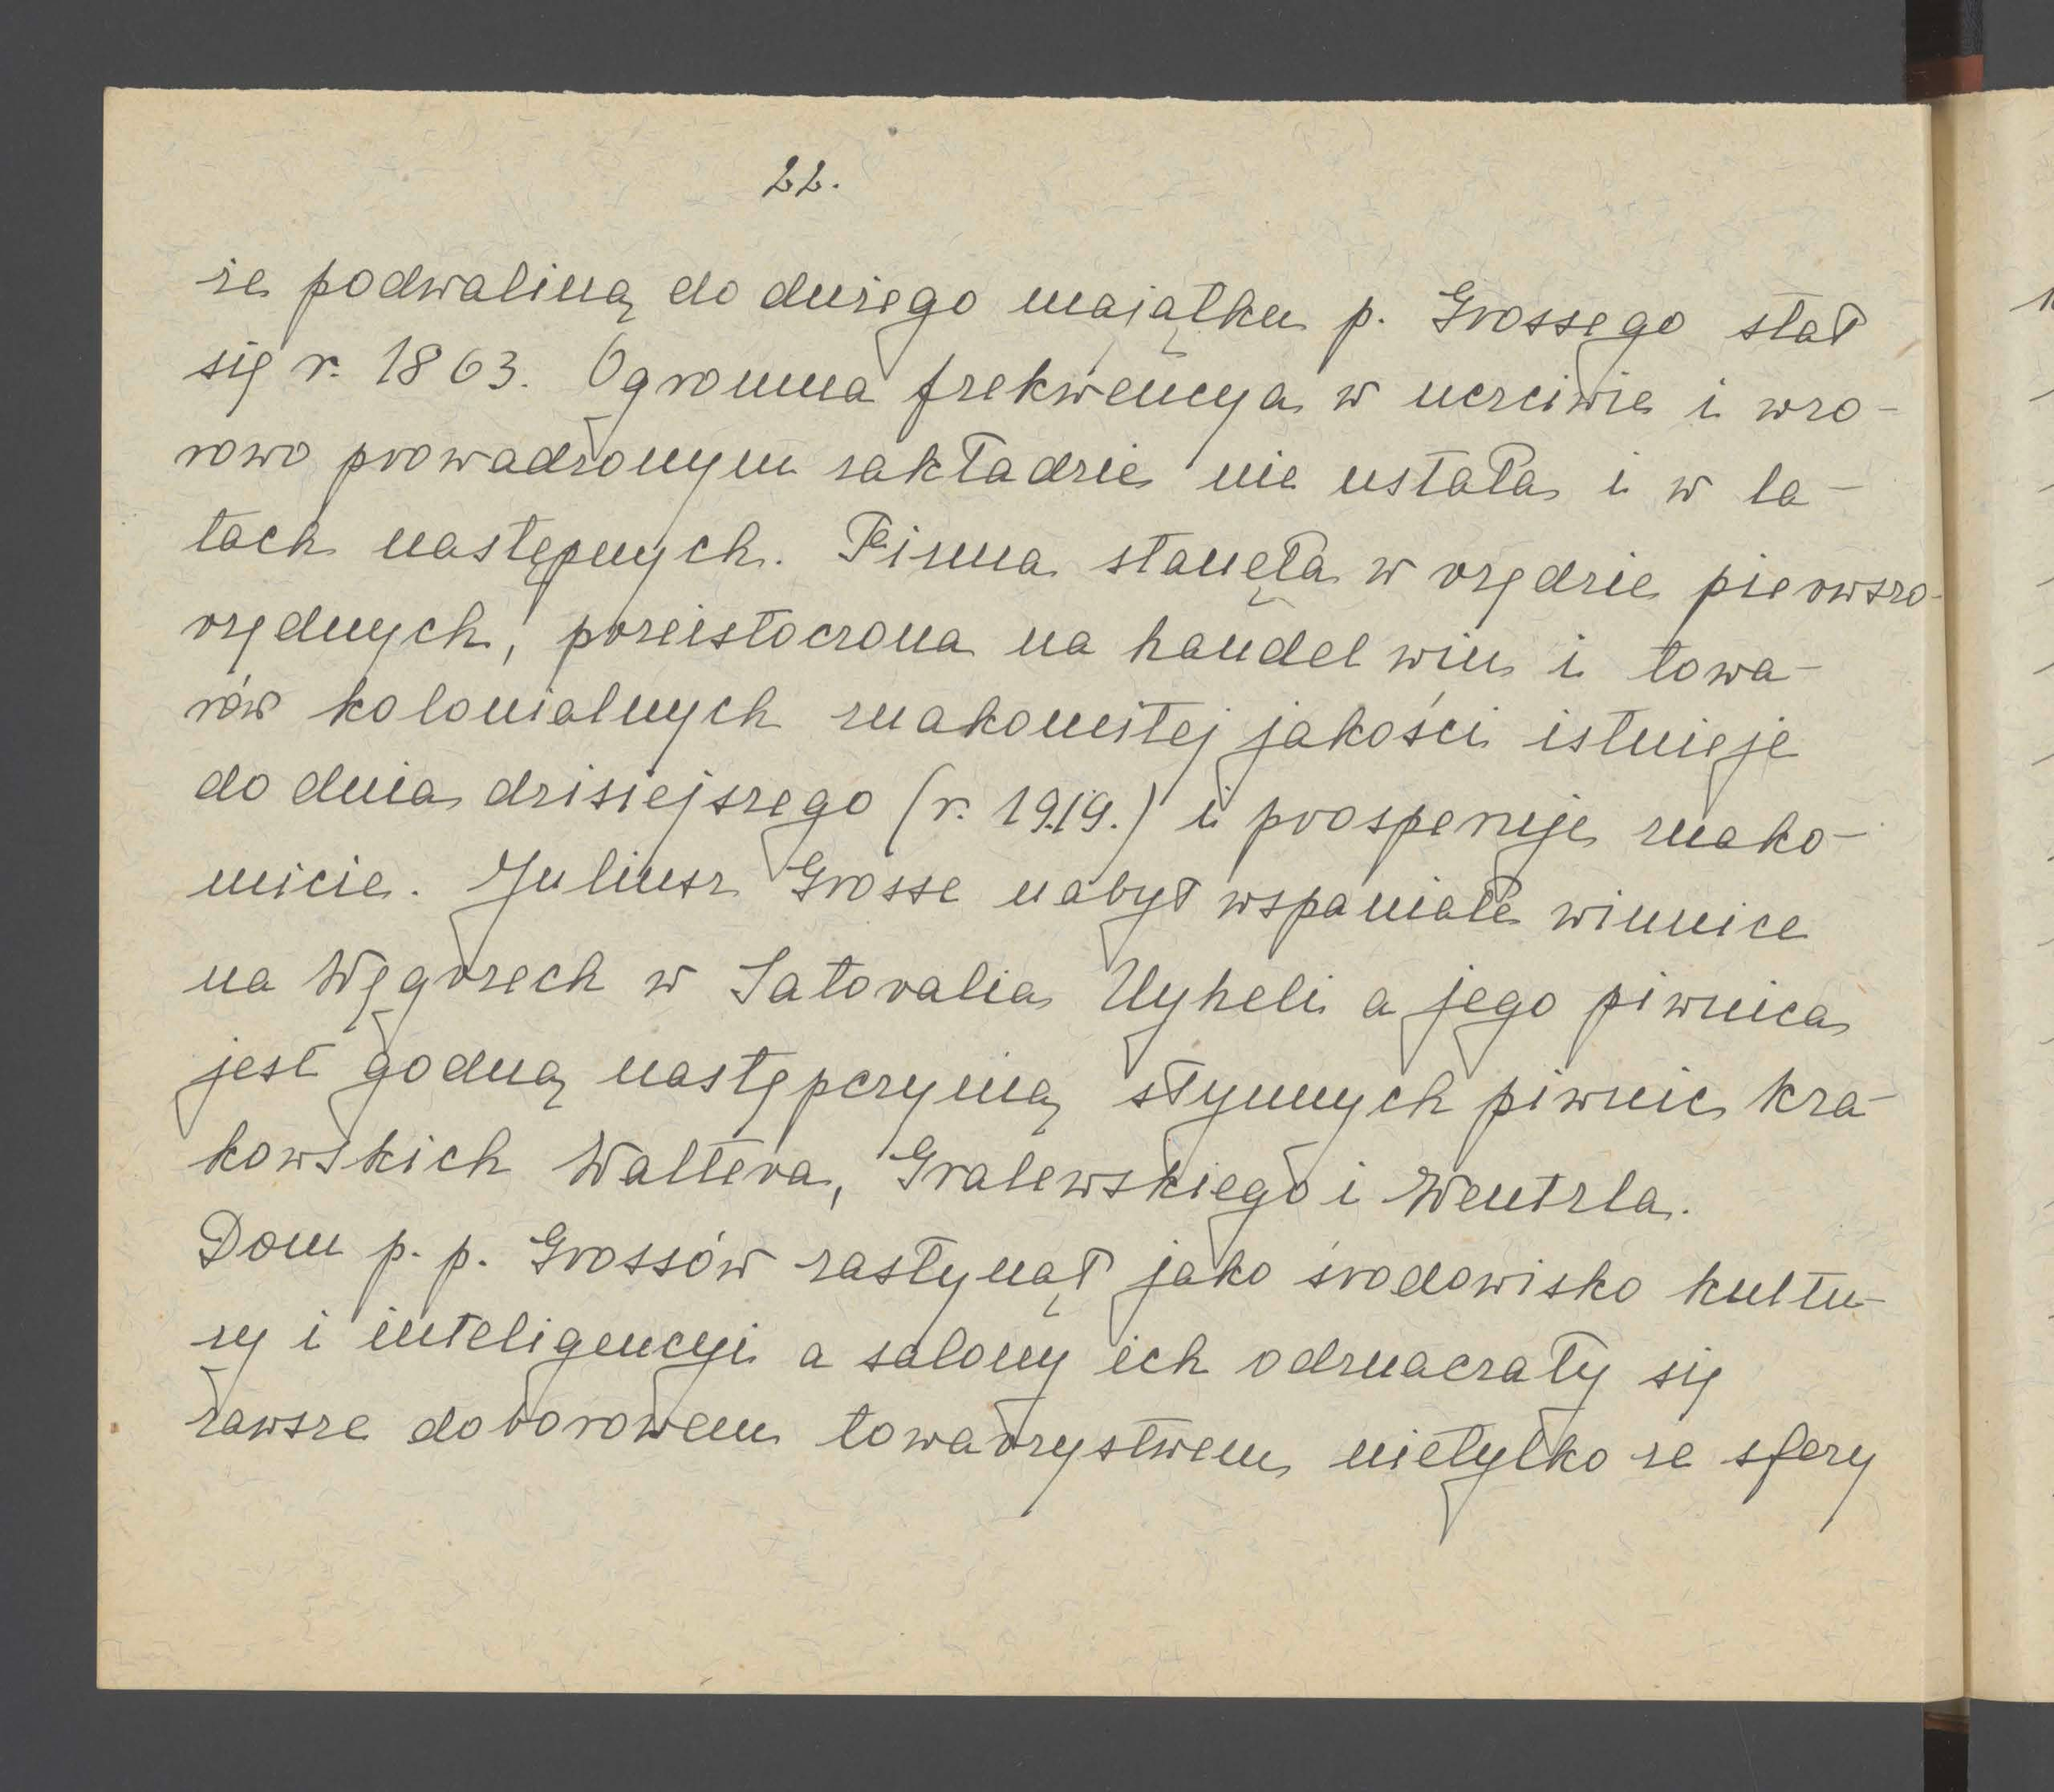 22.
że podwaliną do dużego majątku p. Grossego stał
się r. 1863. Ogromna frekwencya w uczciwie i wzo-
rowo prowadzonym zakładzie nie ustała i w la-
tach następnych. Firma stanęła w rzędzie pierwszo-
rzędnych, przeistoczona na handel win i towa-
rów kolonialnych znakomitej jakości istnieje
do dnia dzisiejszego (r. 1919.) i prosperuje znako-
micie. Juliusz Grosse nabył wspaniałe winnice
na Węgrzech w Satoralia Uyheli a jego piwnica
jest godną następczynią słynnych piwnic kra-
kowskich Waltera, Gralewskiego i Wentzla.
Dom p. p. Grossów zasłynął jako środowisko kultu-
ry i inteligencyi a salony ich odznaczały się
zawsze doborowem towarzystwem nietylko ze sfery